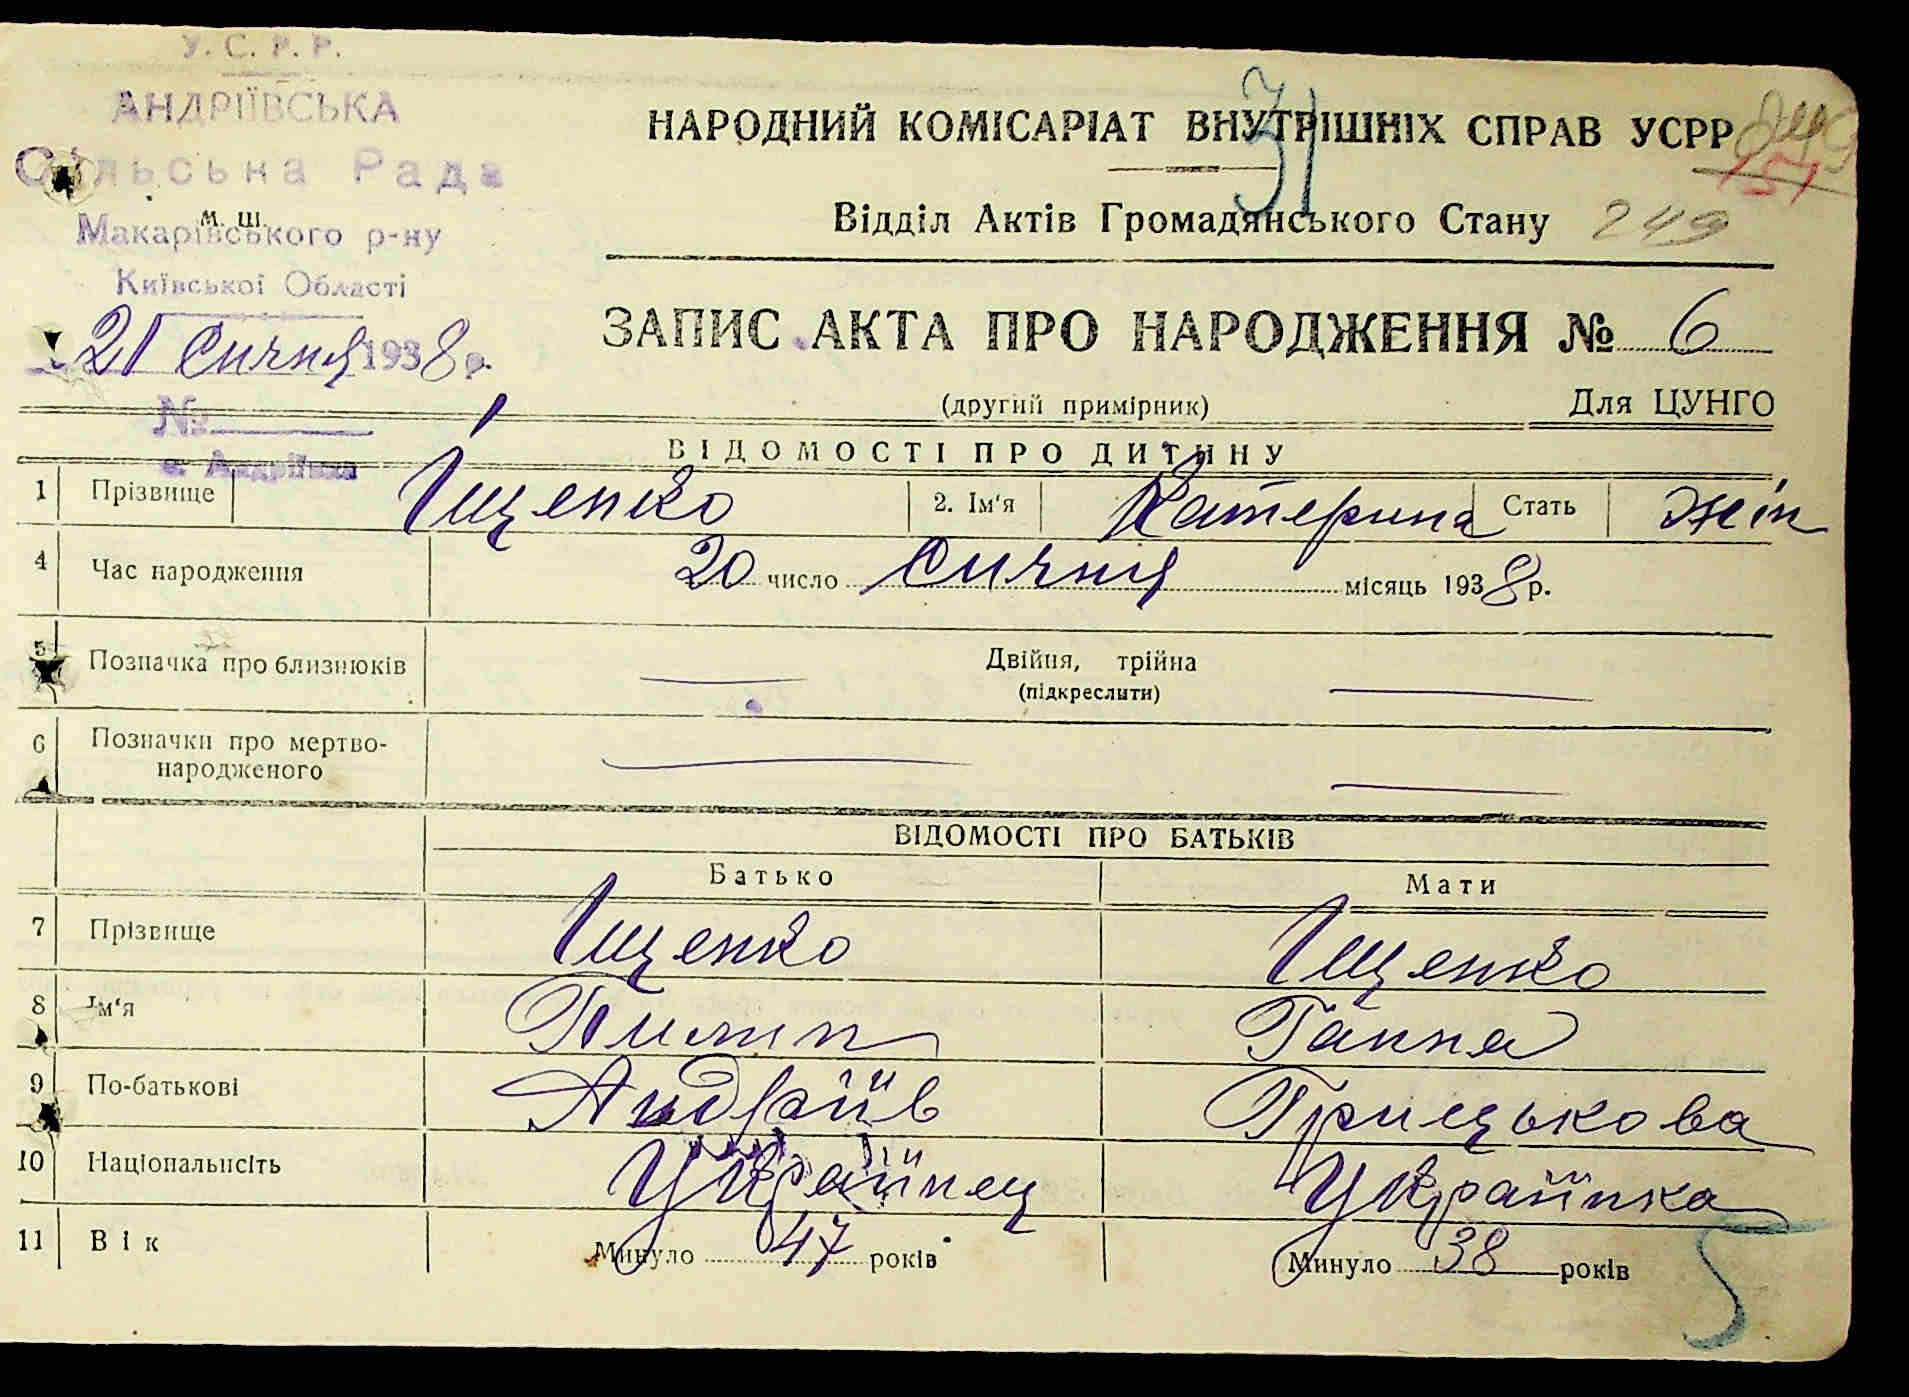 У. С. Р. Р.
АНДРІЇВСЬКА
Сільська Рада
м. ш.
Макарівського р-ну
Київської Області
21 Січня 1938 р.
№
с. Андріївка
31
НАРОДНИЙ КОМІСАРІАТ ВНУТРІШНІХ СПРАВ УСРР
151
Відділ Актів Громадянського Стану 249
ЗАПИС АКТА ПРО НАРОДЖЕННЯ № 6
(другий примірник) Для ЦУНГО
ВІДОМОСТІ ПРО ДИТИНУ
1 Прізвище Іщенко 2. Ім'я Катерина Стать жін
4 Час народження 20 число Січня місяць 1938 р.
5 Позначка про близнюків Двійня, трійна
(підкреслити)
6 Позначки про мертво-
народженого
ВІДОМОСТІ ПРО БАТЬКІВ
Батько Мати
7 Прізвище Іщенко Іщенко
8 Ім'я Пилип Ганна
9 По-батькові Андріїв Грицькова
10 Національність Українец Українка
11 Вік Минуло 47 років Минуло 38 років
5